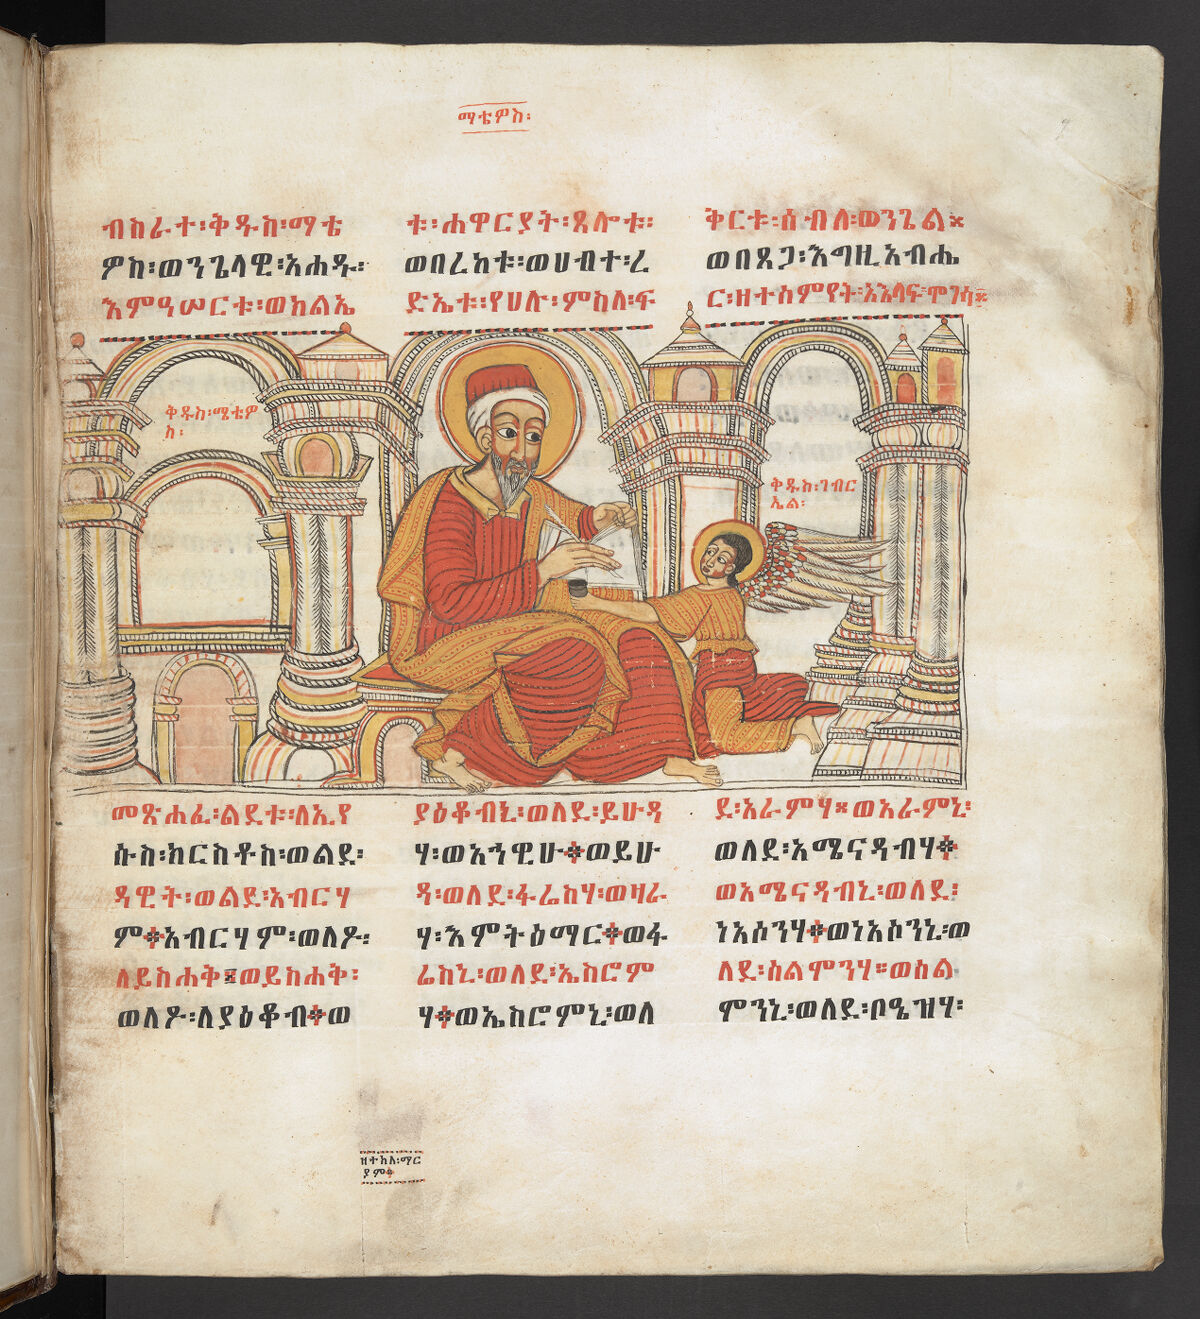 ማቴዎስ፡
ብስራተ፡ቅዱስ፡ማቴ
ዎስ፡ወንጌላዊ፡አሐዱ፡
እምዓሠርቱ፡ወክልኤ
ቱ፡ሐዋርያት፡ጸሎቱ፡
ወበረከቱ፡ወሀብተ፡ረ
ድኤቱ፡የሀሉ፡ምስለ፡ፍ
ቅርቱ፡ሰብለ፡ወንጌል፨
ወበጸጋ፡እግዚአብሔ
ር፡ዘተሰምየት፡
ቅዱስ፡ማቴዎ
ስ፡
ቅዱስ፡ገብር
ኤል፡
መጽሐፈ፡ልደቱ፡ለኢየ
ሱስ፡ክርስቶስ፡ወልደ፡
ዳዊት፡ወልደ፡አብርሃ
ም፨አብርሃም፡ወለዶ፡
ለይስሐቅ፨ወይስሐቅ፡
ወለዶ፡ለያዕቆብ፨ወ
ያዕቆብኒ፡ወለደ፡ይሁዳ
ሃ፡ወአኀዊሁ፨ወይሁ
ዳ፡ወለደ፡ፋሬስሃ፡ወዛራ
ሃ፡እምትዕማር፨ወፋ
ሬስኒ፡ወለደ፡ኤስሮም
ሃ፨ወኤስሮምኒ፡ወለ
ደ፡አራምሃ፨ወአራምኒ፡
ወለደ፡አሚናዳብሃ፨
ወአሚናዳብኒ፡ወለደ፡
ነአሶንሃ፨ወነአሶንኒ፡ወ
ለደ፡ሰልሞንሃ፨ወሰል
ሞንኒ፡ወለደ፡ቦዔዝሃ፡
ዘተክለ፡ማር
ያም፨